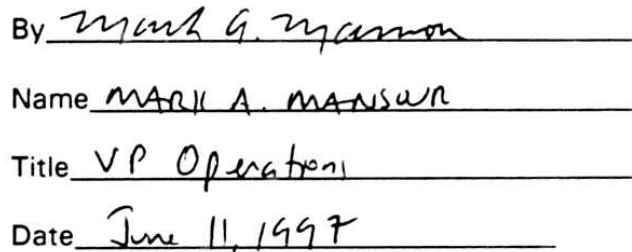 By Mark A. Mansur
Name MARK A. MANSUR
Title VP Operations
Date June 11, 1997